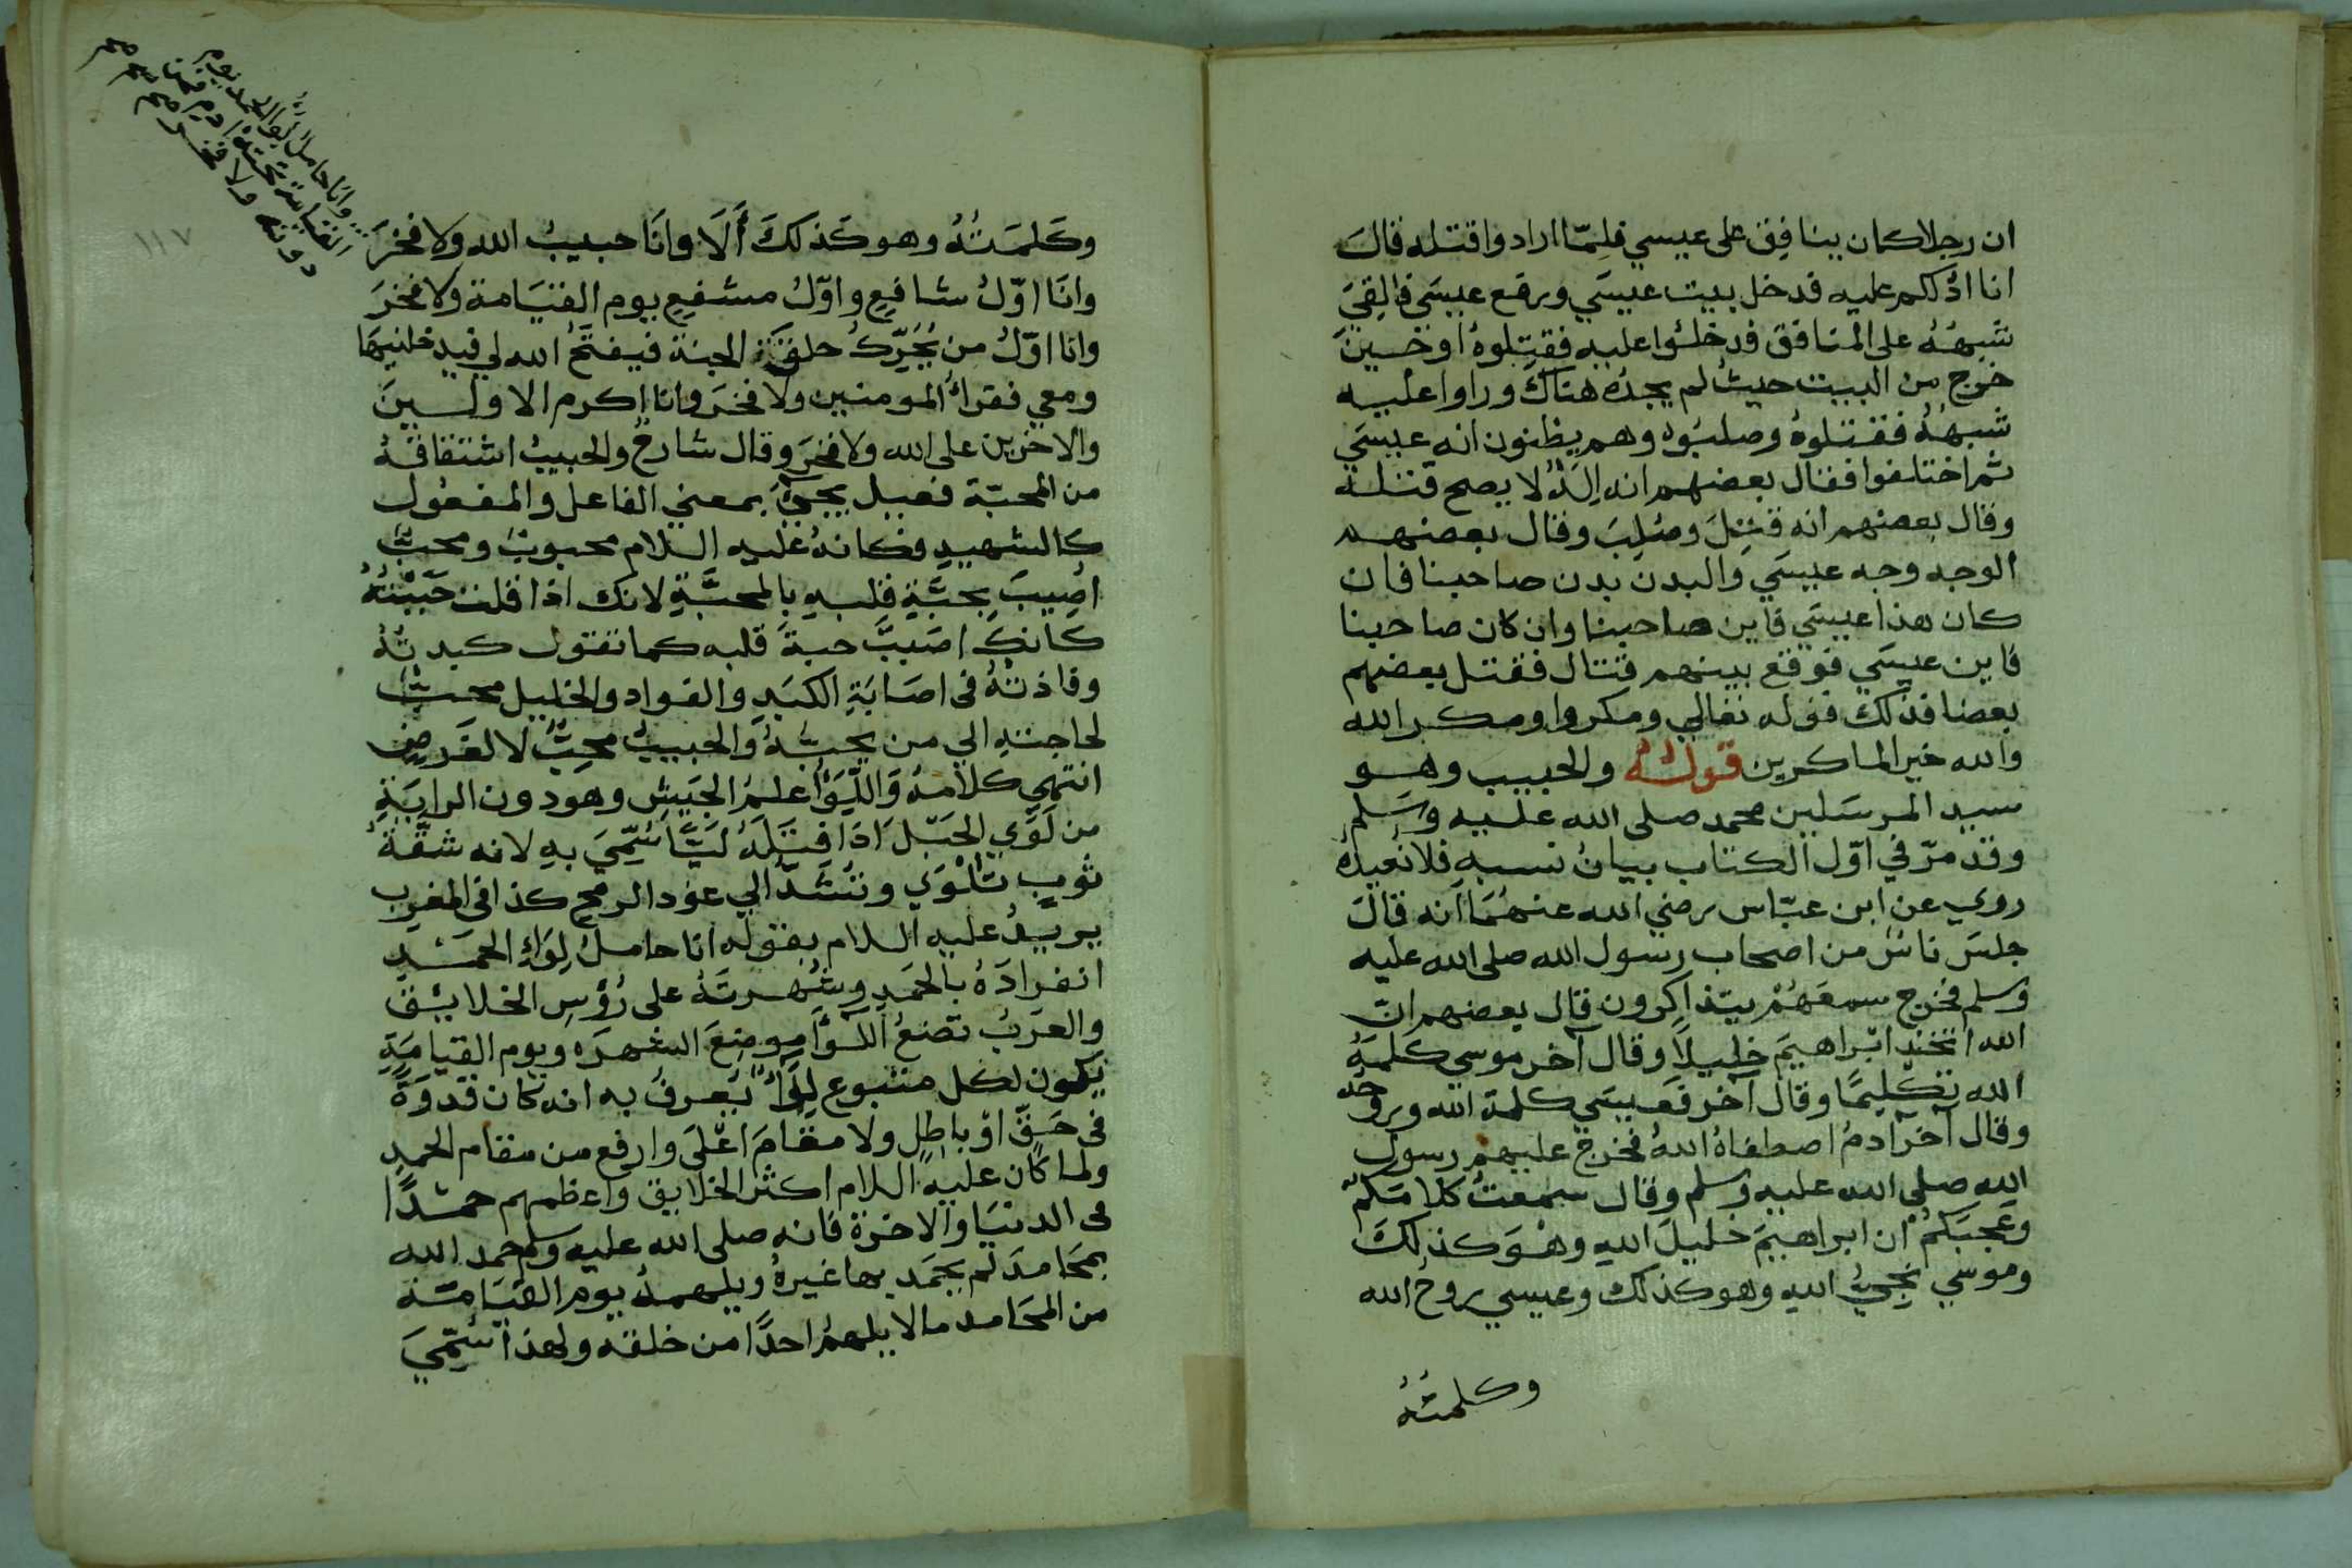 ان رجلا كان ينافق على عيسي فلمّا ارادوا قتله قال
انا ادلكم عليه فدخل بيت عيسَي ورفع عيسَي فالقِيَ
شبهُهُ على المنافق فدخلُوا عليه فقتلوهُ او حين
خرج من البيت حيثُ لم يجدُه هناك وراوا عليه
شبهُهُ فقتلوهُ وصلبُوه وهم يظنون انه عيسَي
ثم اختلفوا فقال بعضهم انه اِلَهٌ لا يصح قتله
وقال بعضهم انه قتِلَ وصُلِبَ وقال بعضهم
الوجه وجه عيسَي والبدن بدن صاحبنا فان
كان هذا عيسَي فاين صاحبنا وان كان صاحبنا
فاين عيسَي فوقع بينهم قتال فقتل بعضهم
بعضا فذلك قوله تعالي ومكروا ومكر الله
والله خير الماكرين قولهُ والحبيب وهو
سيد المرسَلين محمد صلى الله عليه وسَلم
وقد مرّ في اوّل الكتاب بيانُ نسبهِ فلا نُعيدهُ
روي عن ابن عبّاس رضي الله عنهُمَا اَنه قالَ
جلسَ ناسٌ من اصحاب رسول الله صلى الله عليه
وسلم فخرج سمعَهُمْ يتذاكرون قال بعضهم انّ
الله اتخذ ابْراهيمَ خليلاً وقال آخر موسي كلمَهُ
الله تكليمًا وقال آخر فعيسَي كلمة الله وروحُه
وقال آخر آدمُ اصطفاهُ اللهُ فخرج عليهم رسول
الله صلى الله عليه وسلم وقال سمعتُ كلامَكمْ
وَعجبَكمْ ان ابراهيمَ خليلَ اللهِ وهْوَ كذلِكَ
وموسَي نجيُّ اللهِ وهو كذلك وعيسي روحُ الله
وكلمتُهُ
وكَلمَتُهُ وهو كَذلكَ أَلَا وانَا حبيبُ الله ولا فخرَ
وانَا اوّلُ شافِعٍ واوّلُ مشفعٍ يوم القيَامة ولا فخرَ
وانا اوّلُ من يُحَرِّكُ حلقَةَ الجنة فيفتحُ الله لي فيدخلنيهَا
ومعي فقراءُ المومنين ولا فخرَ وانا اكرم الاولين
والاخرين على الله ولا فخرَ وقال شارحٌ والحبيبُ اشتقاقهُ
من المحبّة فعيل يجيءُ بمعني الفاعل والمفعُول
كالشهيدِ فكانهُ عليه السلام محبوبٌ ومحبٌّ
اُصِيبَ بحَبَّةِ قلبهِ بالمحبَّةِ لانك اذا قلت حَبَبْتُهُ
كانك اصَبْتَ حبةَ قلبه كما تقول كبدتهُ
وفاذتهُ في اصَابَةِ الكبَدِ والفواد والخليل محبٌّ
لحاجتهِ الي من يحبُّهُ والحبيبُ محِبٌّ لا لغَرضٍ
انتهي كلامُهُ وَاللِّوَاُ علمُ الجَيشِ وهو دون الرايَةِ
من لَوَي الحَبْل اذا فتَلَهُ ليًّا سُمِّيَ بهِ لانه شقّةُ
ثوبٍ تُلْوَي وتُشَدُّ الي عود الرمح كذا في المغرب
يريدُ عليه السلام بقوله انا حاملُ لِوَاءِ الحمد
انفرادَهُ بالحَمدِ وشُهرتَهُ على رُؤسِ الخلايق
والعرَبُ تَضعُ اللوَاَ موضِعَ الشهرَه ويوم القيامَةِ
يَكون لكل متبوع لِوَاءٌ يُعرفُ به انه كان قدوَةً
في حَقٍّ اوْ باطِلٍ ولا مقامَ اعْلَى وارفع من مقام الحمدِ
ولما كان عليه السلام اكثر الخلايق واعظمهم حمدًا
في الدنيَا والاخرة فانه صلى الله عليه وسلم حمد الله
بمحَامدَ لم يحمَد بها غيرهُ ويلهمهُ يوم القيَامَة
من المحَامد مالا يلهمُ احدًا من خلقه ولهذا سُمِّيَ
وانا حاملُ لواء الحمد يوم
القيامة تحتهُ ادم فمن
دونه ولا فخر صح
١١٧